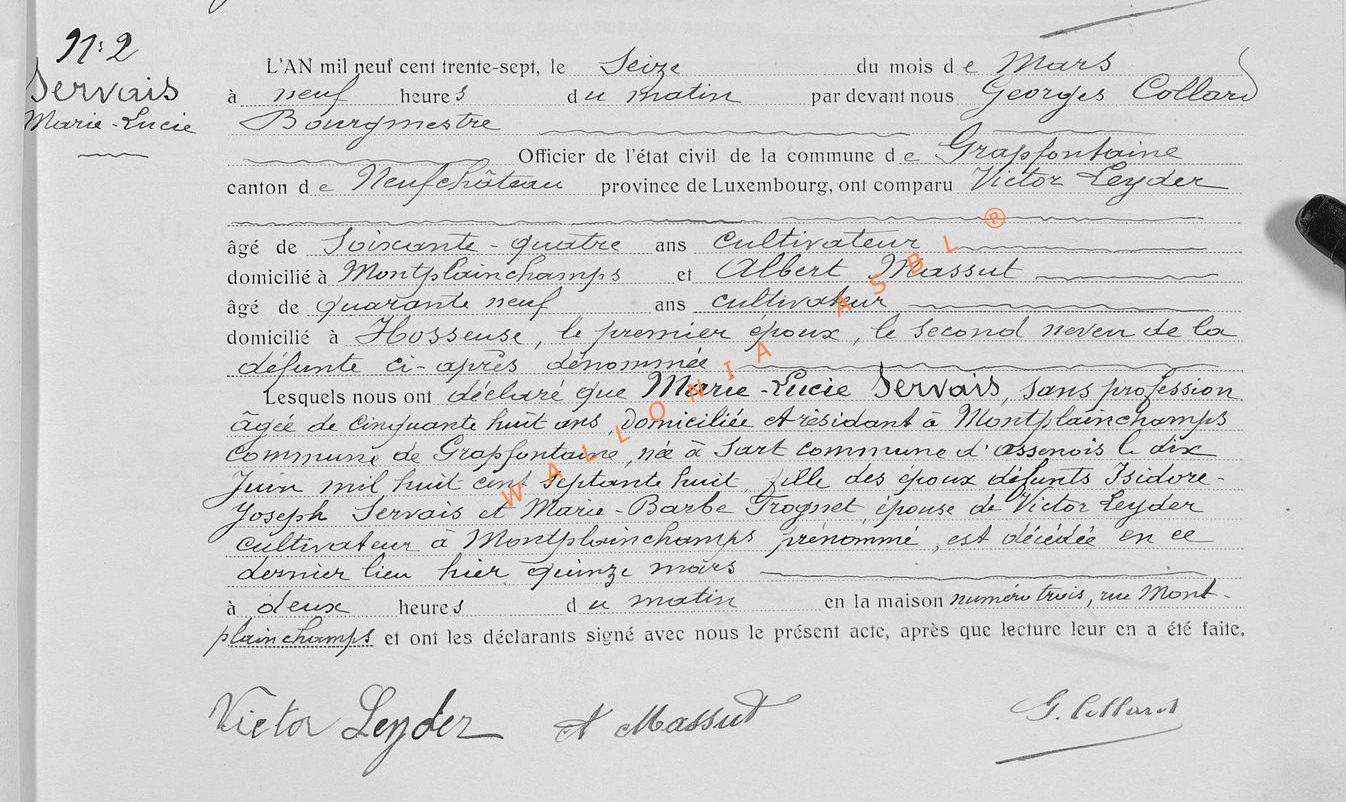 N° 2
Servais
Marie-Lucie
L'AN mil neuf cent trente-sept, le Seize du mois de Mars
à neuf heures du matin par devant nous Georges Collard
Bourgmestre
Officier de l'état civil de la commune de Grapfontaine
canton de Neufchâteau province de Luxembourg, ont comparu Victor Leyder
âgé de soixante-quatre ans cultivateur
domicilié à Montplainchamps et Albert Massut
âgé de quarante neuf ans cultivateur
domicilié à Hosseuse, le premier époux, le second neveu de la
défunte ci-après dénommée
Lesquels nous ont déclaré que Marie-Lucie Servais, sans profession
âgée de cinquante huit ans, domiciliée et résidant à Montplainchamps
commune de Grapfontaine, née à Sart commune d'assenois le dix
Juin mil huit cent septante huit, fille des époux défunts Isidore-
Joseph Servais et Marie-Barbe Trognet, épouse de Victor Leyder
cultivateur à Montplainchamps prénommé, est décédée en ce
dernier lieu hier quinze mars
à deux heures du matin en la maison numéro trois, rue Mont-
plainchamps et ont les déclarants signé avec nous le présent acte, après que lecture leur en a été faite.
Victor Leyder A Massut G. Collard
WALLONIA ASBL ®